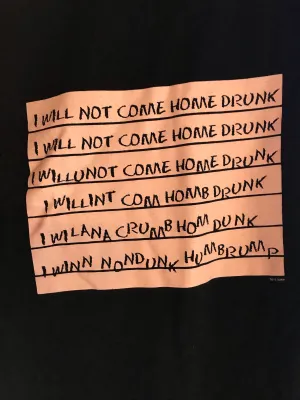 I WILL NOT COME HOME DRUNK
I WILL NOT COME HOME DRUNK
I WILLUNOT COME HOME DRUNK
I WILLINT COM HOMB DRUNK
I WILANA CRUMB HOM DUNK
I WINN NONDUNK HUMBRUMP